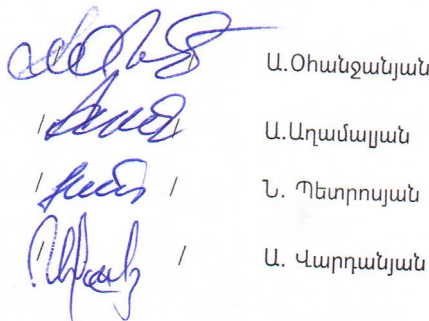 / / Ա.Օհանջանյան
/ / Ա.Աղամալյան
/ / Ն. Պետրոսյան
/ / Ա. Վարդանյան